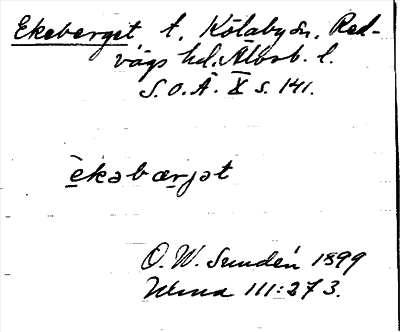 Ekeberget t. Kölaby sn, Red-
vägs hd. Älvsb. l.
S.O.Ä. X s. 141.
èkabærjət
O. W. Sundén 1899
Ulma 111:273.